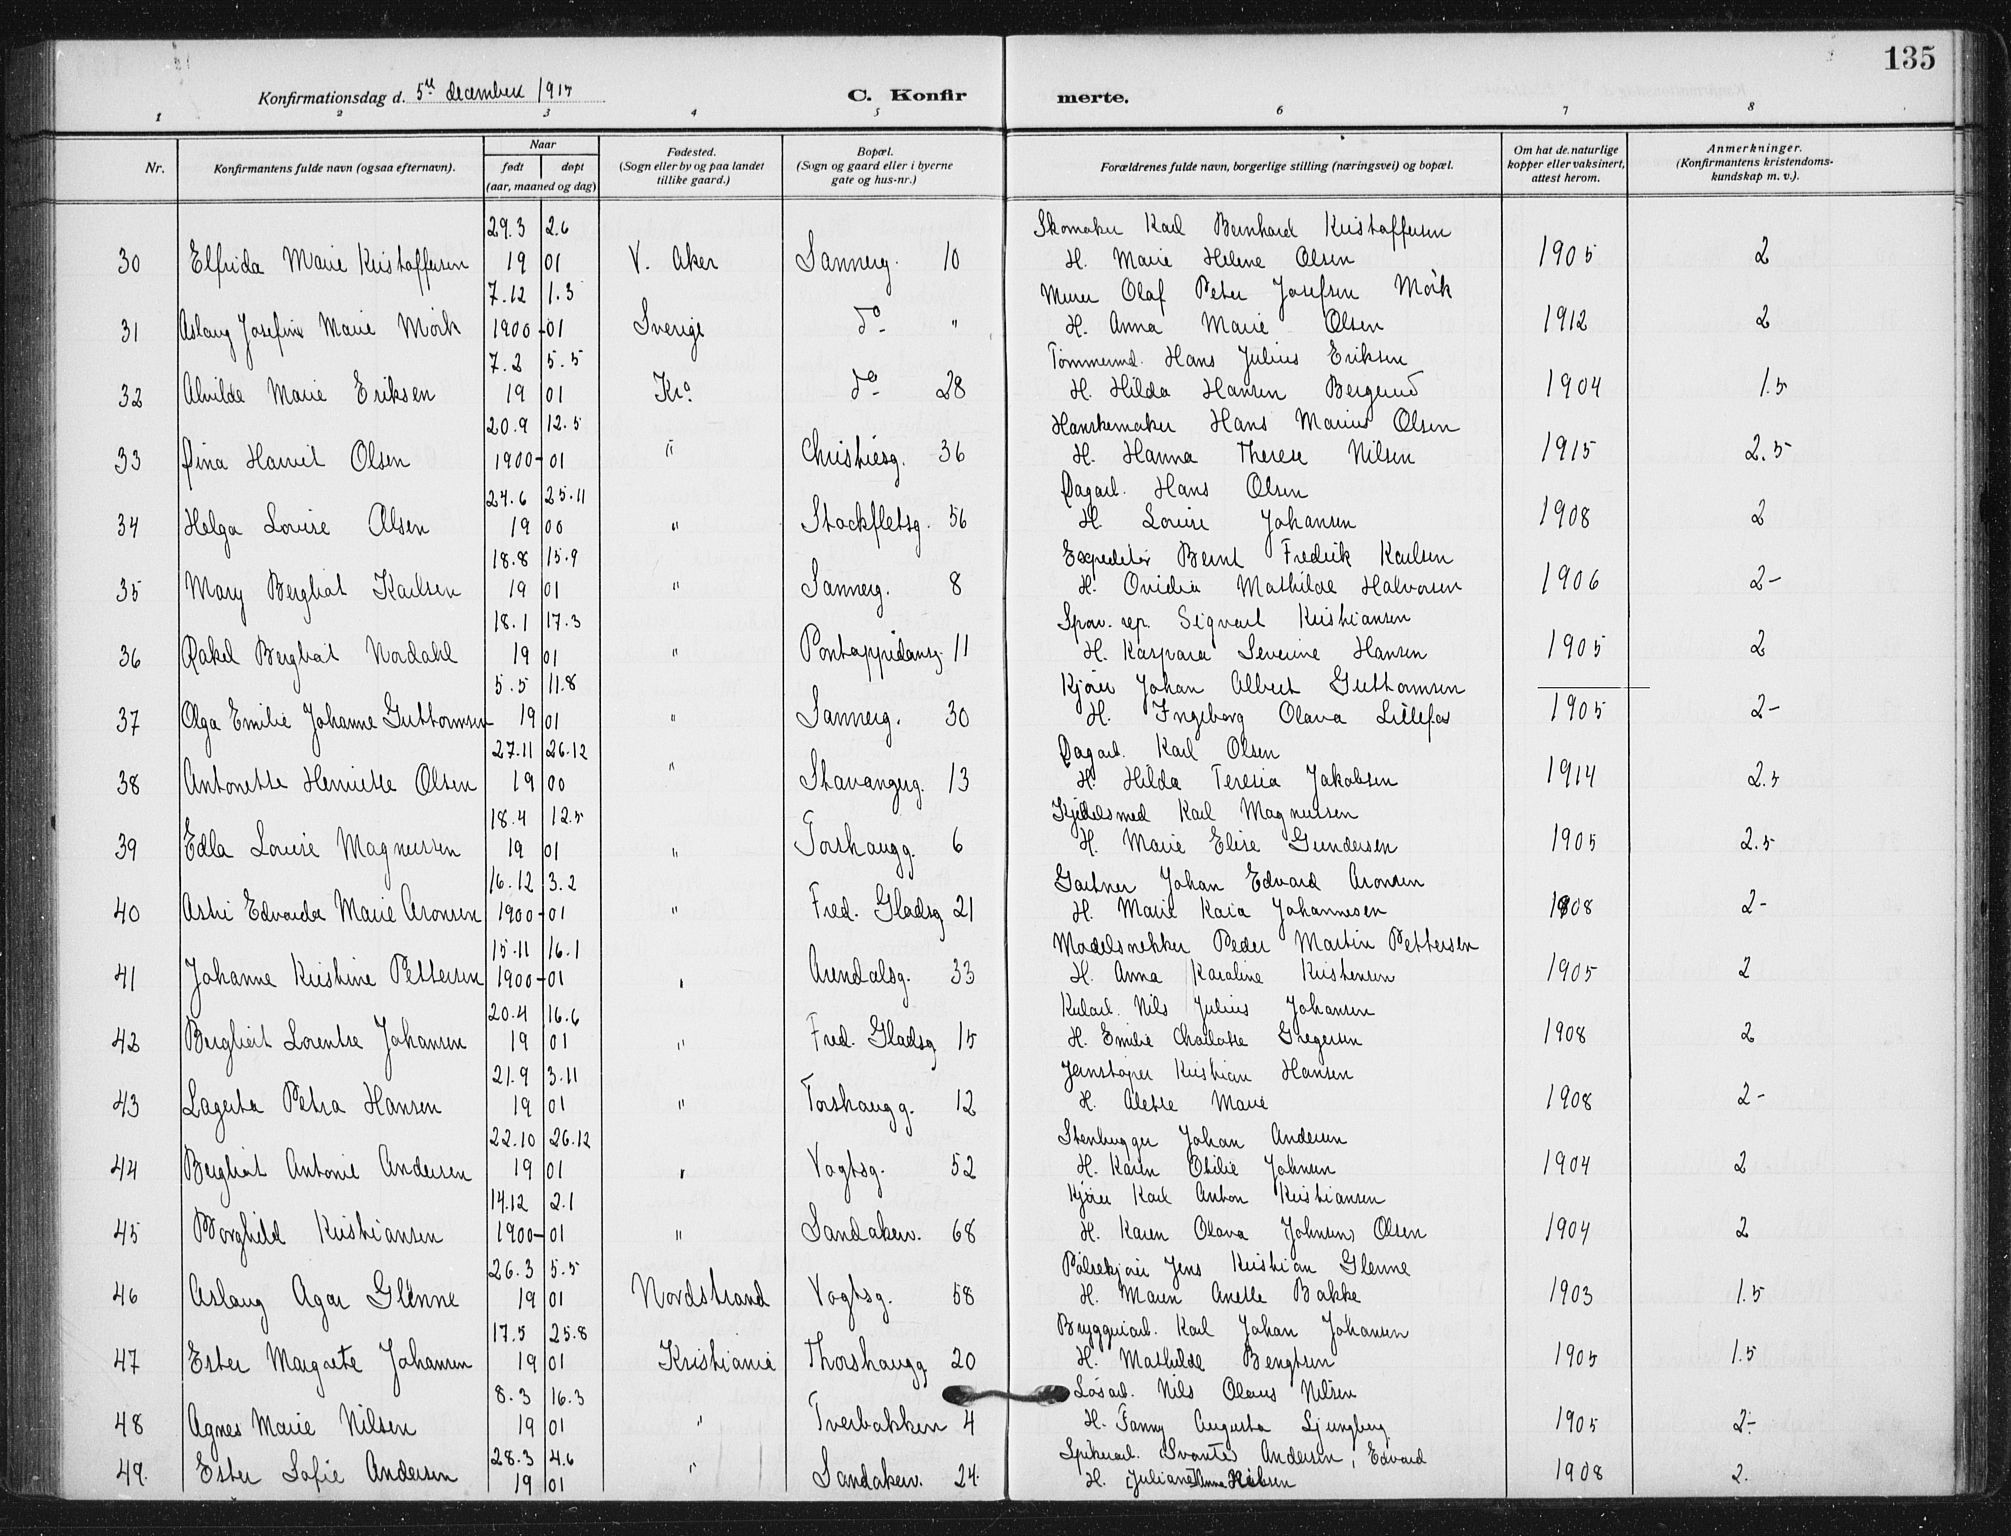 135
Konfirmationsdag d. 5te december 1917 C. Konfirmerte.
1 2 3 4 5 6 7 8
Nr. Konfirmantens fulde navn (ogsaa efternavn). Naar født døpt (aar, maaned og dag) Fødested. (Sogn eller by og paa landet tillike gaard.) Bopæl. (Sogn og gaard eller i byerne gate og hus-nr.) Forældrenes fulde navn, borgerlige stilling (næringsvei) og bopæl. Om hat de naturlige kopper eller vaksinert, attest herom. Anmerkninger. (Konfirmantens kristendomskundskap m. v.).
29.3 2.6 Skomaker Karl Bernhard Kristoffersen
30 Elfrida Marie Kristoffersen 19 01 V. Aker Sannerg. 10 H. Marie Helene Olsen 1905 2
7.12 1.3 Murer Olaf Peter Josefsen Mörk
31 Aslaug Josefine Marie Mörk 1900-01 Sverige do " H. Anna Marie Olsen 1912 2
7.2 5.5 Tømmermd. Hans Julius Eriksen
32 Alvilde Marie Eriksen 19 01 Kra do 28 H. Hilda Hansen Bergerud 1904 1.5
20.9 12.5 Hanskemaker Hans Marius Olsen
33 Dina Harriet Olsen 1900-01 " Christiesg. 36 H. Hanna Therese Nilsen 1915 2.5
24.6 25.11 Dagarb. Hans Olsen
34 Helga Louise Olsen 19 00 " Stockfletsg. 56 H. Louise Johansen 1908 2
18.8 15.9 Expeditör Bernt Fredrik Karlsen
35 Mary Bergliot Karlsen 19 01 " Sannerg. 8 H. Ovidia Mathilde Halvorsen 1906 2-
18.1 17.3 Sporv. rep. Sigvart Kristiansen
36 Rakel Bergliot Nordahl 19 01 " Pontoppidansg. 11 H. Kaspara Severine Hansen 1905 2
5.5 11.8 Kjører Johan Albert Guttormsen
37 Olga Emilie Johanne Guttormsen 19 01 " Sannerg. 30 H. Ingeborg Olava Lillefos 1905 2-
27.11 26.12 Dagarb. Karl Olsen
38 Antonette Henriette Olsen 19 00 " Stavangerg. 13 H. Hilda Teresia Jakobsen 1914 2.5
18.4 12.5 Kjedelsmed Karl Magnussen
39 Edla Louise Magnussen 19 01 " Torshaugg. 6 H. Marie Elise Gundersen 1905 2.5
16.12 3.2 Gartner Johan Edvard Aronsen
40 Astri Edvarda Marie Aronsen 1900-01 " Fred. Gladsg 21 H. Marie Kaia Johannesen 1908 2-
15.11 16.1 Modelsnekker Peder Martin Pettersen
41 Johanne Kristine Pettersen 1900-01 " Arendalsg. 33 H. Anna Karoline Kristensen 1905 2
20.4 16.6 Kularb. Nils Julius Johansen
42 Bergliot Lorentse Johansen 19 01 " Fred. Gladsg 15 H. Emilie Charlotte Gregersen 1908 2
21.9 3.11 Jernstøper Kristian Hansen
43 Lagerta Petra Hansen 19 01 " Torshaugg. 12 H. Alette Marie 1908 2-
22.10 26.12 Stenhugger Johan Andersen
44 Bergliot Antonie Andersen 19 01 " Vogtsg. 52 H. Karen Otilie Johnsen 1904 2
14.12 2.1 Kjører Karl Anton Kristiansen
45 Borghild Kristiansen 1900-01 " Sandakerv. 68 H. Karen Olava Johnsens Olsen 1904 2
26.3 5.5 Pölsekjörer Jens Kristian Glenne
46 Aslaug Agar Glenne 19 01 Nordstrand Vogtsg. 58 H. Maren Anette Bakke 1903 1.5
17.5 25.8 Bryggeriarb. Karl Johan Johansen
47 Ester Margrete Johansen 19 01 Kristiania Thorshaugg 20 H. Mathilde Bengtsen 1905 1.5
8.3 16.3 Løsarb. Nils Olaus Nilsen
48 Agnes Marie Nilsen 19 01 " Tverbakken 4 H. Fanny Augusta Ljungberg 1905 2-
28.3 4.6 Spikerarb. (Svante) Andersen, Edvard
49. Ester Sofie Andersen 19 01 " Sandakerv. 24. H. Juliane Anna Nilsen 1908 2.